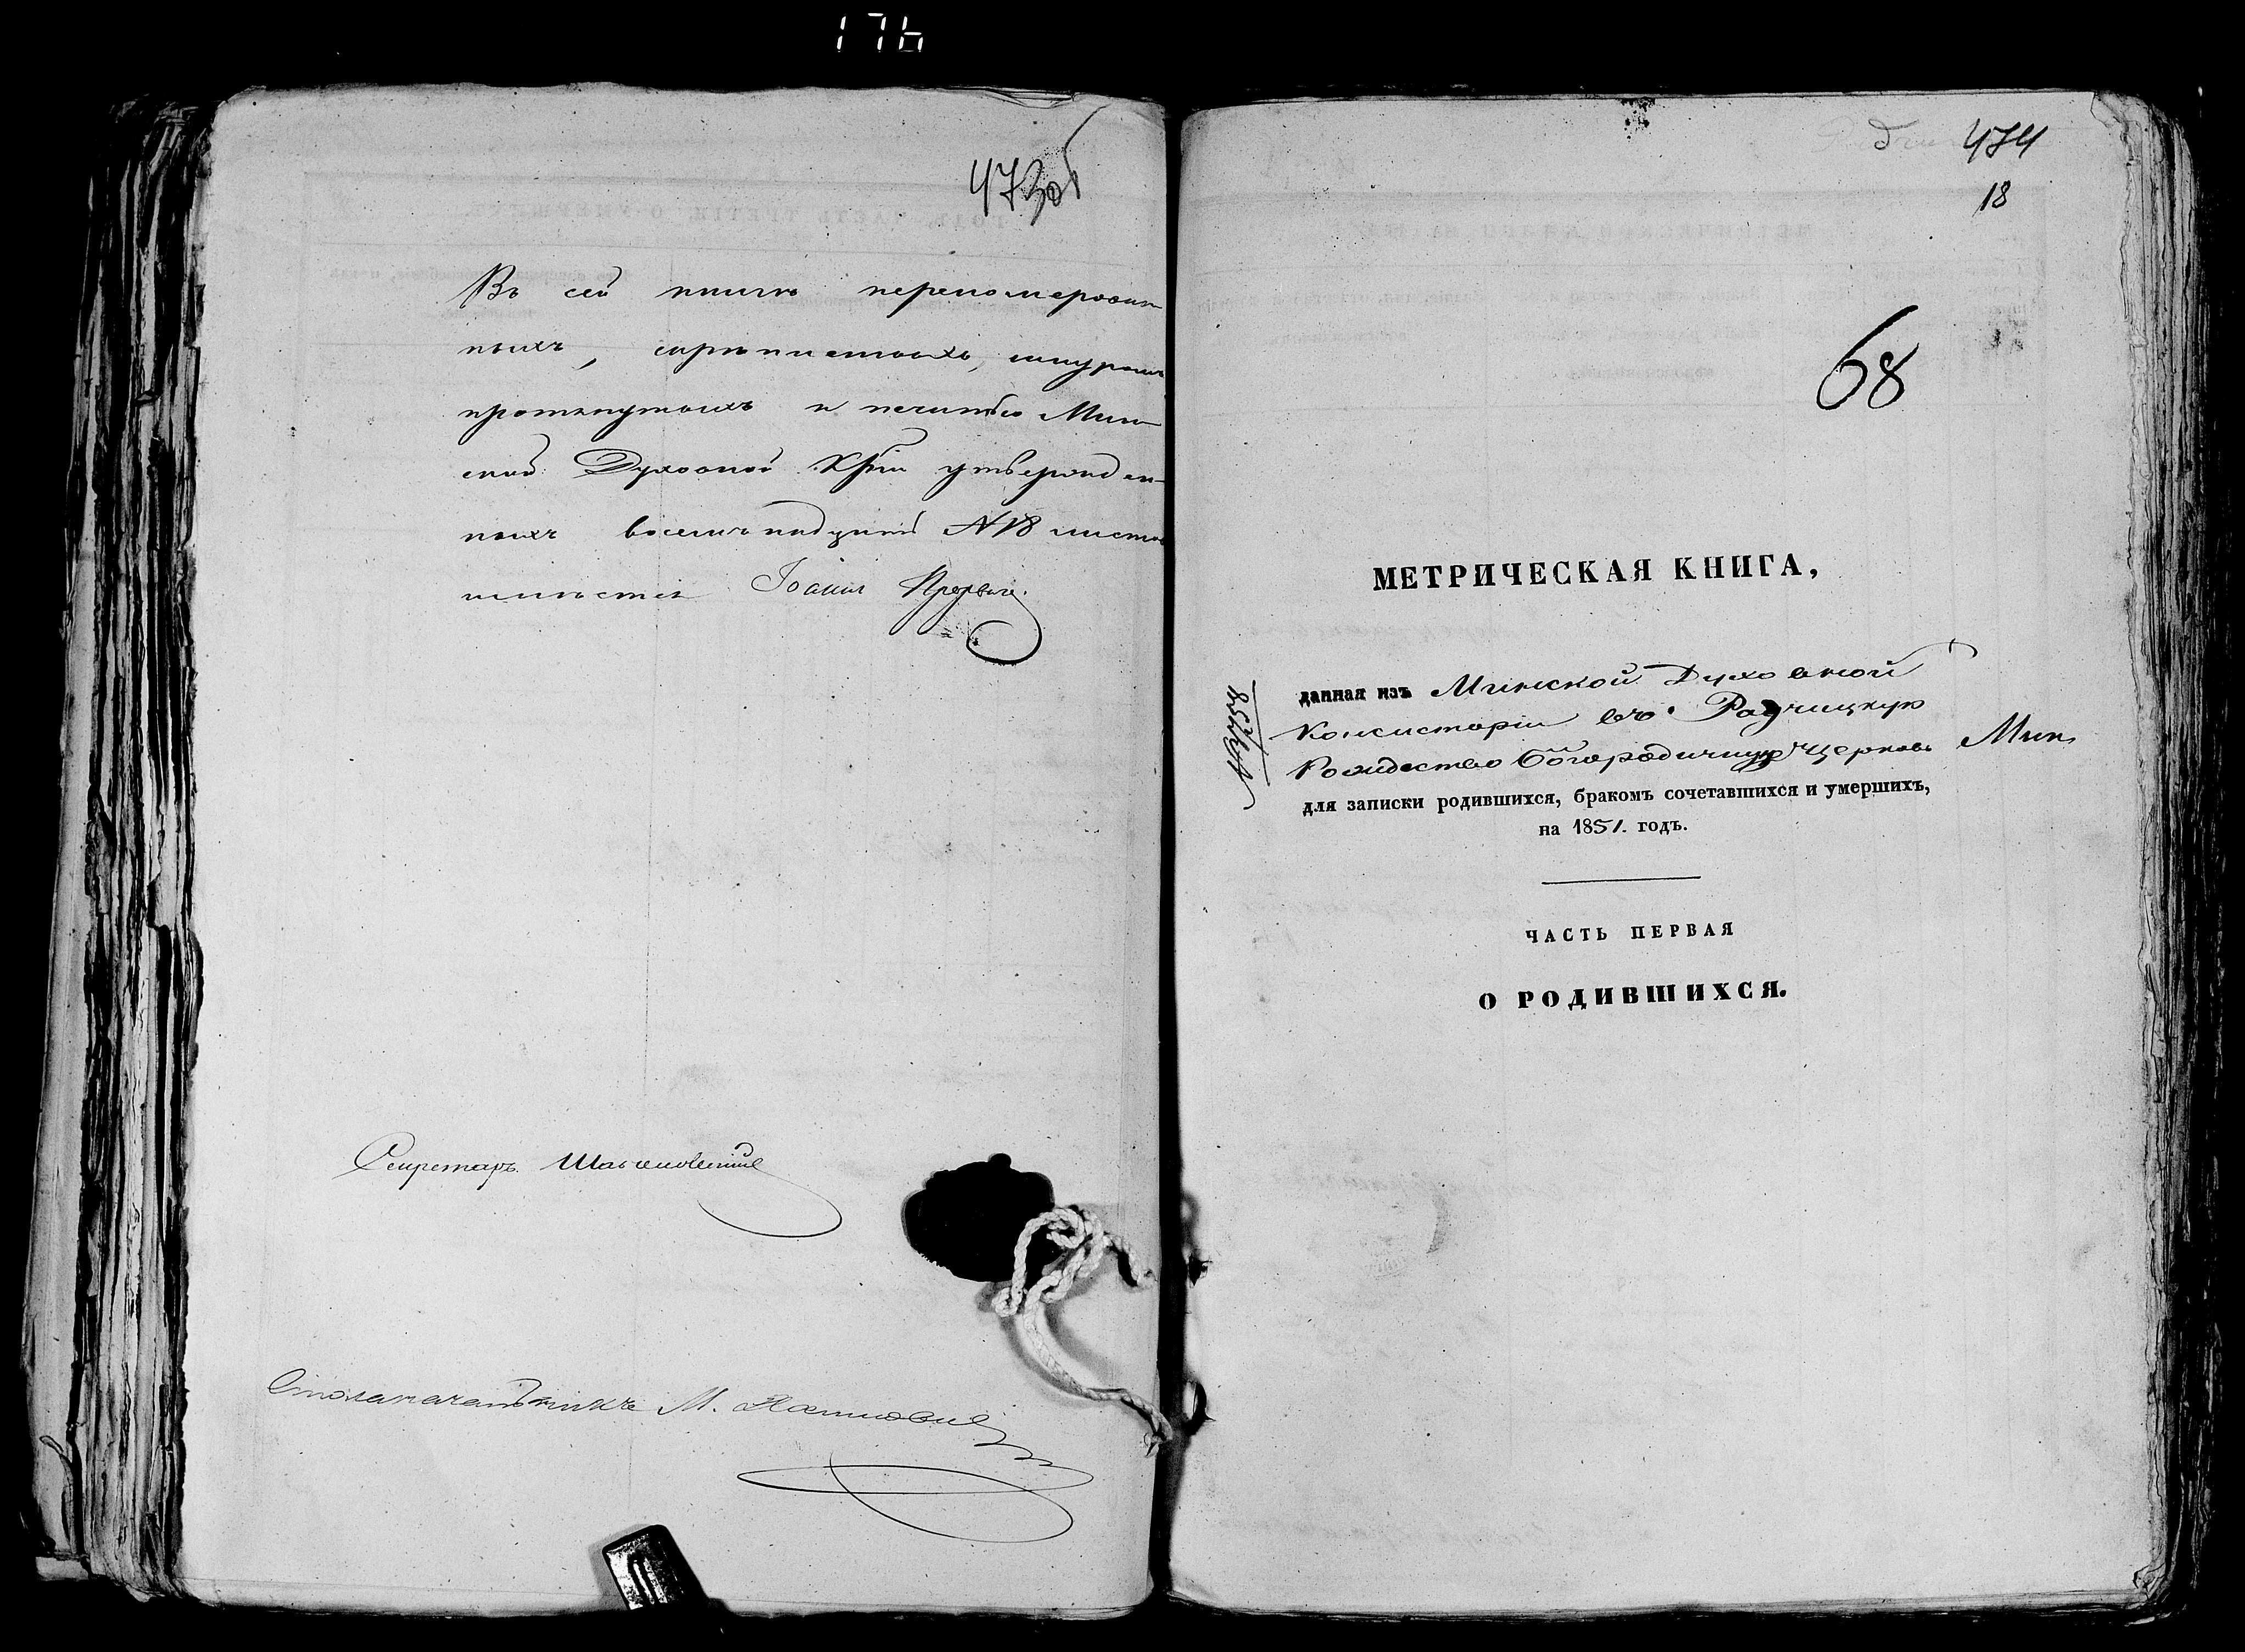 176
473об
Въ сей книгѣ перенумерован-
ныхъ, скрѣпистыхъ, шнуромъ
протянутыхъ и печатью Мин-
ской Духовной Кріи утвержден-
ныхъ восемнадцать N 18 листовъ
Іоаннъ
Секретарь
Столоначальникъ М.
474
18
68
МЕТРИЧЕСКАЯ КНИГА,
данная изъ Минской Духовной
Консисторіи въ Радчицкую
Рождество Богородичную Церковь Мин,
для записки родившихся, бракомъ сочетавшихся и умершихъ,
на 1851. годъ.
ЧАСТЬ ПЕРВАЯ
О РОДИВШИХСЯ.